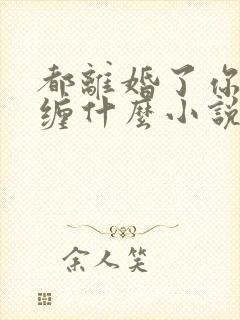 都離婚了你
缠什麼小說
余人笑